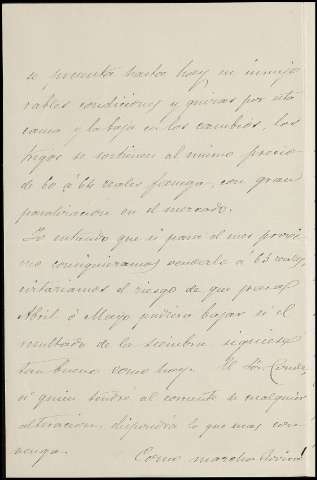 se presenta hasta hoy, en inmejo
rables condiciones y quizas por esta
causa y la baja en los cambios, los
trigos se sostienen al mismo precio
de 60 á 64 reales fanega, con gran
paralización en el mercado.
Yo entiendo que si para el mes proxi
mo consiguieramos venderlo a 63 reales,
evitariamos el riesgo de que para
Abril ó Mayo pudiera bajar si el
resultado de la siembra siguiese
tan bueno como hoy. El Sór. Conde,
á quien tendré al corriente de cualquier
alteracion, dispondrá lo que mas con
venga.
Como marcha